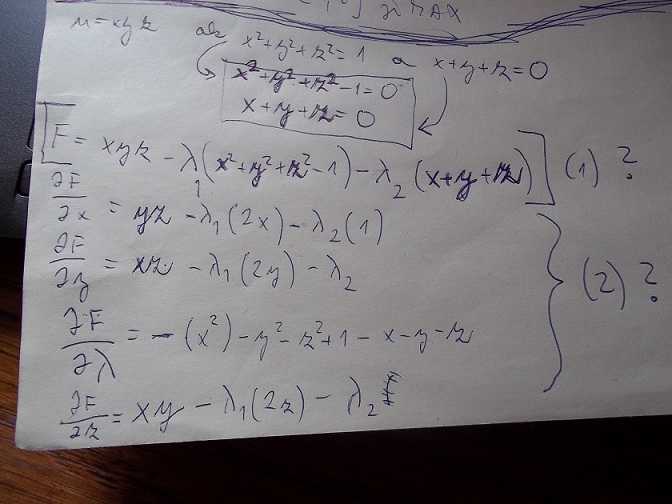 u = xyz ak x²+y²+z²=1 a x+y+z=0
x²+y²+z²-1=0
x+y+z=0
F = xyz - λ₁(x²+y²+z²-1) - λ₂(x+y+z) (1) ?
∂F/∂x = yz - λ₁(2x) - λ₂(1)
∂F/∂y = xz - λ₁(2y) - λ₂ (2) ?
∂F/∂λ = -(x²) - y² - z² + 1 - x - y - z
∂F/∂z = xy - λ₁(2z) - λ₂